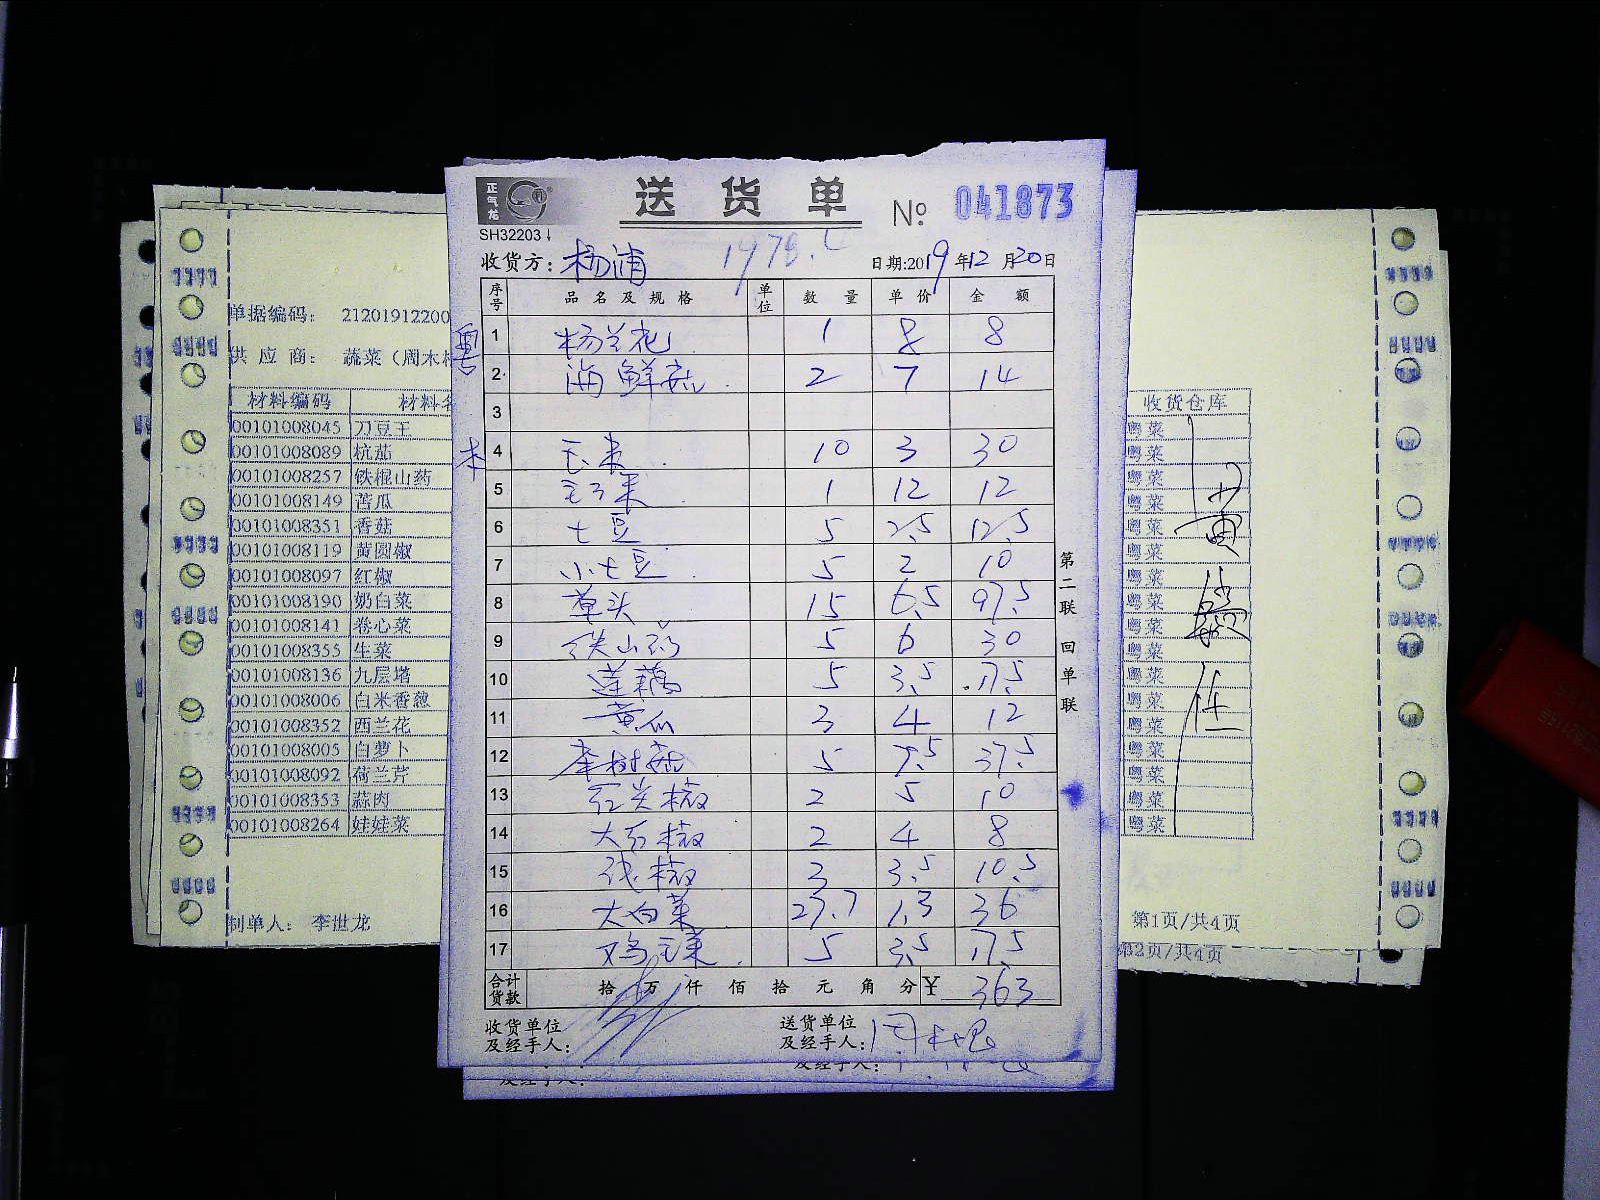 正气龙
送货单 № 041873
SH32203
收货方: 杨浦 日期:2019年12月20日
序号 品名及规格 单位 数量 单价 金额
粤 1 杨兰花 1 8 8
2 海鲜菇 2 7 14
3
本 4 玉米 10 3 30
5 毛豆 1 12 12
6 土豆 5 2.5 12.5
7 小土豆 5 2 10
8 草头 15 6.5 97.5
9 铁山药 5 6 30
10 莲藕 5 3.5 17.5
11 黄瓜 3 4 12
12 茶树菇 5 7.5 37.5
13 红尖椒 2 5 10
14 大红椒 2 4 8
15 线椒 3 3.5 10.5
16 大白菜 27.7 1.3 36
17 鸡毛菜 5 3.5 17.5
合计货款 拾 万 仟 佰 拾 元 角 分 ¥ 363
收货单位及经手人:
送货单位及经手人:
第二联 回单联
单据编码: 21201912200
供应商: 蔬菜(周木
材料编码 材料名
00101008045 刀豆王
00101008089 杭茄
00101008257 铁棍山药
00101008149 苦瓜
00101008351 香菇
00101008119 黄圆椒
00101008097 红椒
00101008190 奶白菜
00101008141 卷心菜
00101008355 生菜
00101008136 九层塔
00101008006 白米香葱
00101008352 西兰花
00101008005 白萝卜
00101008092 荷兰芹
00101008353 蒜肉
00101008264 娃娃菜
制单人: 李世龙
收货仓库
粤菜
粤菜
粤菜
粤菜
粤菜
粤菜
粤菜
粤菜
粤菜
粤菜
粤菜
粤菜
粤菜
粤菜
粤菜
粤菜
粤菜
第1页/共4页
第2页/共4页